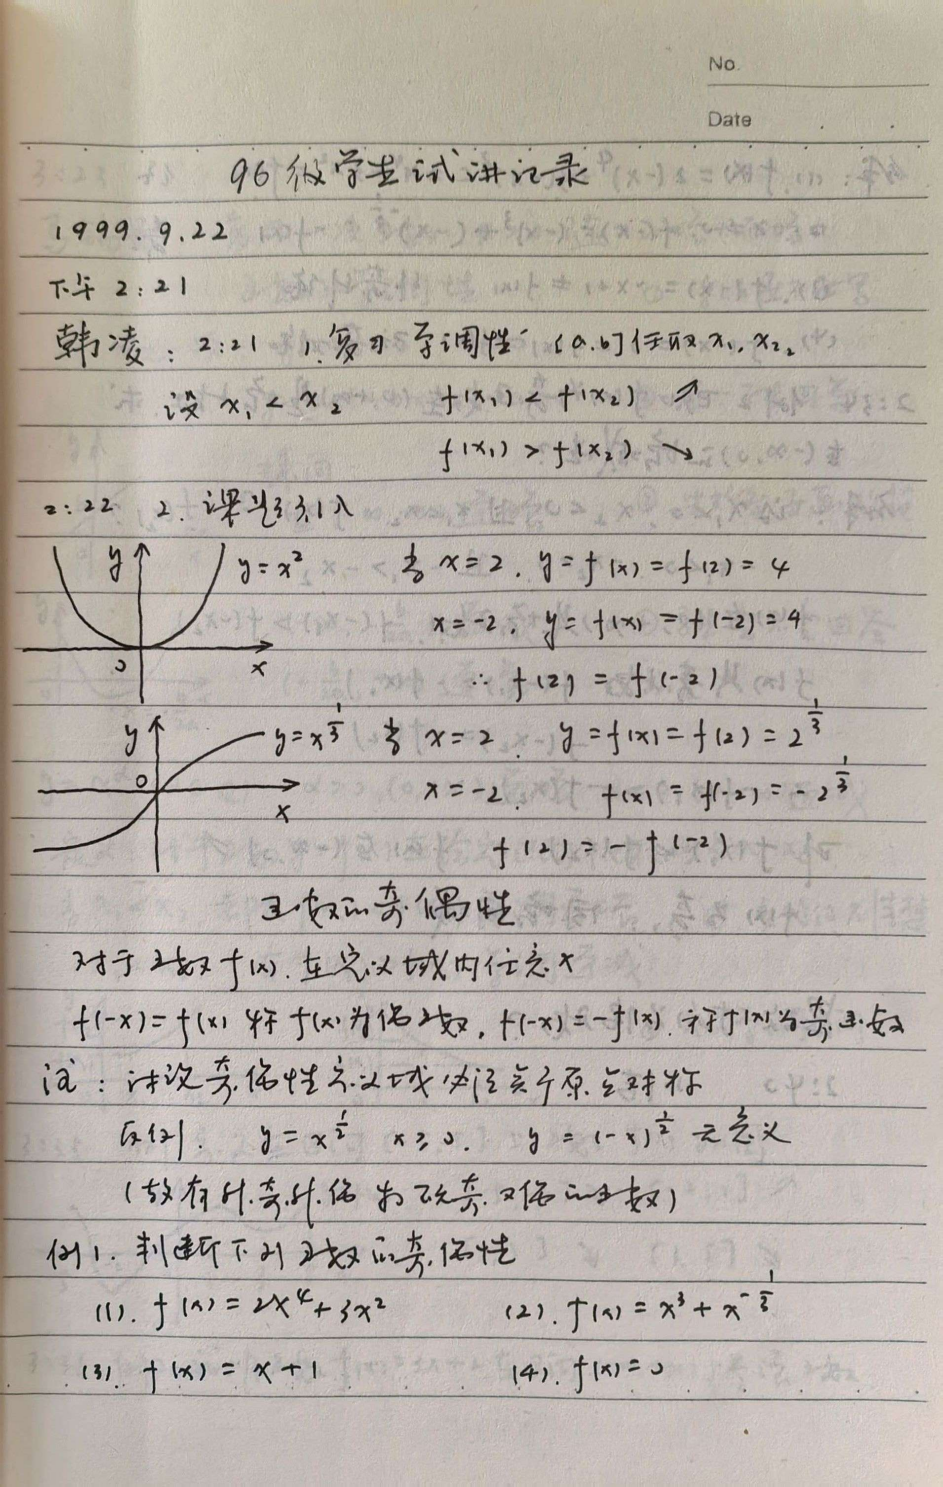 No.
Date
96级学生试讲记录
1999.9.22
下午 2:21
韩凌: 2:21 1.复习单调性 [a.b]任取x₁,x₂,
设 x₁<x₂ f(x₁)<f(x₂) ↗
f(x₁)>f(x₂) ↘
2:22 2.课题引入
y y=x² 当 x=2, y=f(x)=f(2)=4
x=-2, y=f(x)=f(-2)=4
0 x
∴ f(2)=f(-2)
y y=x^{1/3} 当 x=2. y=f(x)=f(2)=2^{1/3}
0 x x=-2. f(x)=f(-2)=-2^{1/3}
f(2)=-f(-2)
函数的奇偶性
对于函数f(x).在定义域内任意x
f(-x)=f(x) 称f(x)为偶函数, f(-x)=-f(x). 称f(x)为奇函数
注: 讨论奇偶性定义域必须关于原点对称
反例. y=x^{1/2} x≥0. y=(-x)^{1/2} 无意义
(故有非奇非偶 既奇又偶的函数)
例1. 判断下列函数的奇偶性
(1). f(x)=2x⁴+3x² (2). f(x)=x³+x^{-1/3}
(3). f(x)=x+1 (4). f(x)=0